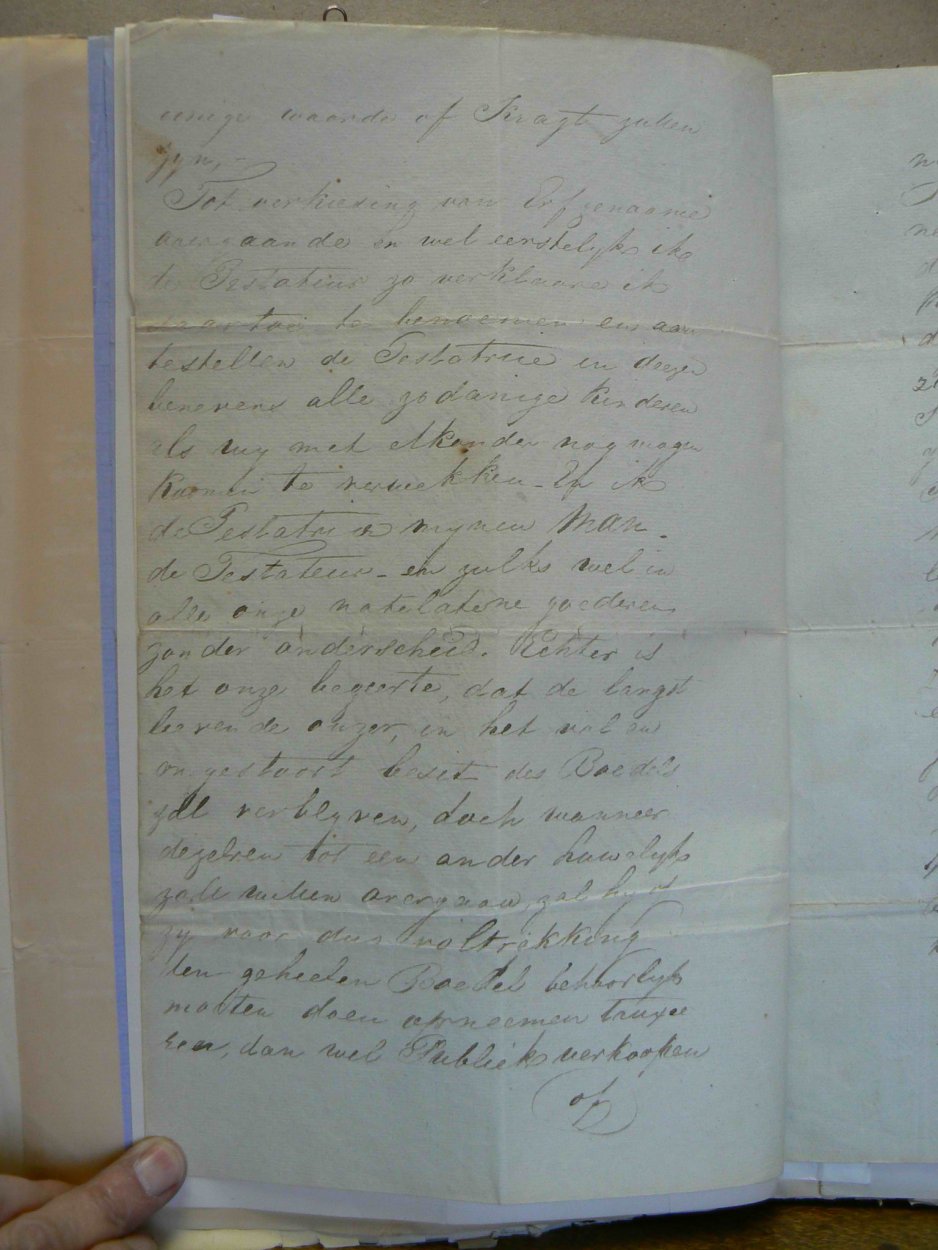 eenige waarde of Kragt zullen
zyn,-
Tot verkiesing van Erfgenaame
overgaande en wel eerstelyk ik
de Testateur zo verklaare ik
daartoe te benoemen en aan
testellen de Testatrice in deezen
benevens alle zodanige kinderen
als wy met elkander nog mogen
koomen te verwekken - En ik
de Testatrice mynen Man -
de Testateur - en zulks wel in
alle onze natelatene goederen
zonder onderscheid. Echter is
het onze begeerte, dat de langst
leevende onzer, in het vol en
ongestoort beset des Boedels
zal verblyven, doch wanneer
dezelven tot een ander huwelyk
zoude willen overgaan, zal hy of
zy voor dies voltrekking
den geheelen Boedel behoorlyk
moeten doen opneemen taxee
ren, dan wel Publiek verkoopen
of